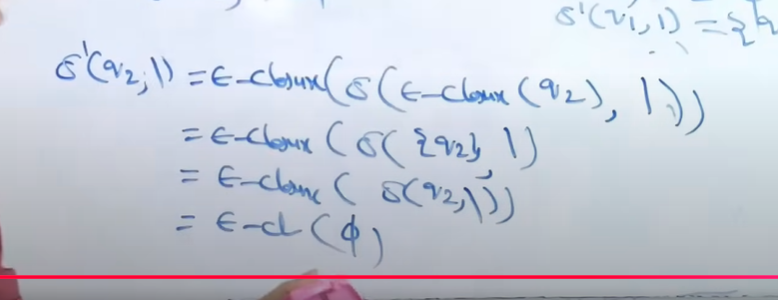 δ'(q1,1) = {q
δ'(q2,1) = ε-closure(δ(ε-closure(q2), 1))
= ε-closure(δ({q2}, 1)
= ε-closure(δ(q2,1))
= ε-cl(φ)